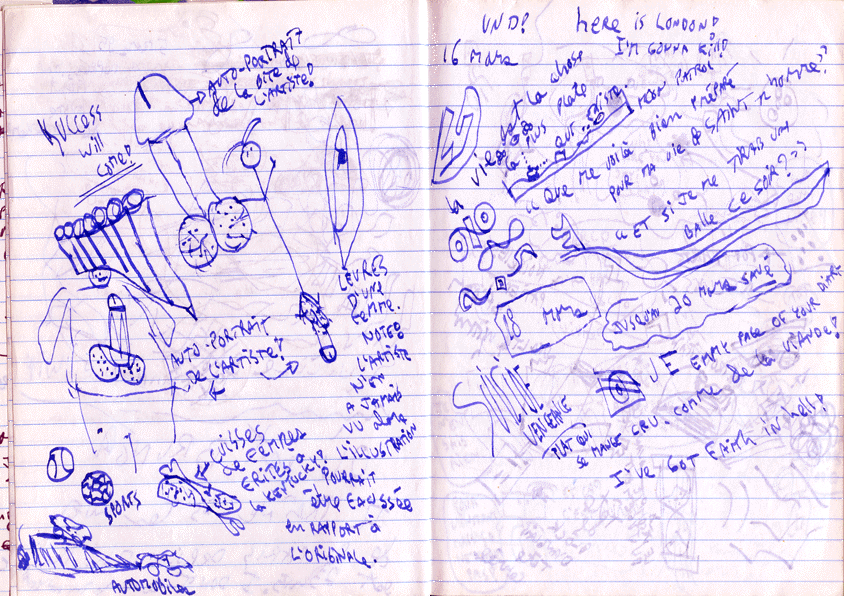 AUTO-PORTRAIT
de la bite de
L'ARTISTE!
KUCCESS
will
come!
AUTO-PORTRAIT
DE L'ARTISTE!!
LEVRES
D'UNE
femme.
NOTEZ
L'ARTISTE
N'EN
A JAMAIS
VU dans
L'ILLUSTRATION
POURRAIT
être faussée
en RAPPORT à
L'ORIGINALE.
CUISSES
de femmes
SPORTS
AUTOMOBILES
UND!
here is LONDOND
I'M GONNA
16 Mars
LA VIE est la chose
la PLUS PLATE
qui existe.
MON PATRON!
"Que me voilà bien PRÉPARÉ
POUR MA VIE de SAINT homme!"
"ET SI JE ME TIRAIS UNE
BALLE CE SOIR?"
18 Mars
JUSQU'AU 20 Mars SAUTÉ
SUICIDE
VENGEANCE
PLAT QUI
SE MANGE CRU. COMME de la VIANDE!
EMPTY PAGE OF YOUR DIARY
I'VE GOT EARTH in hell!